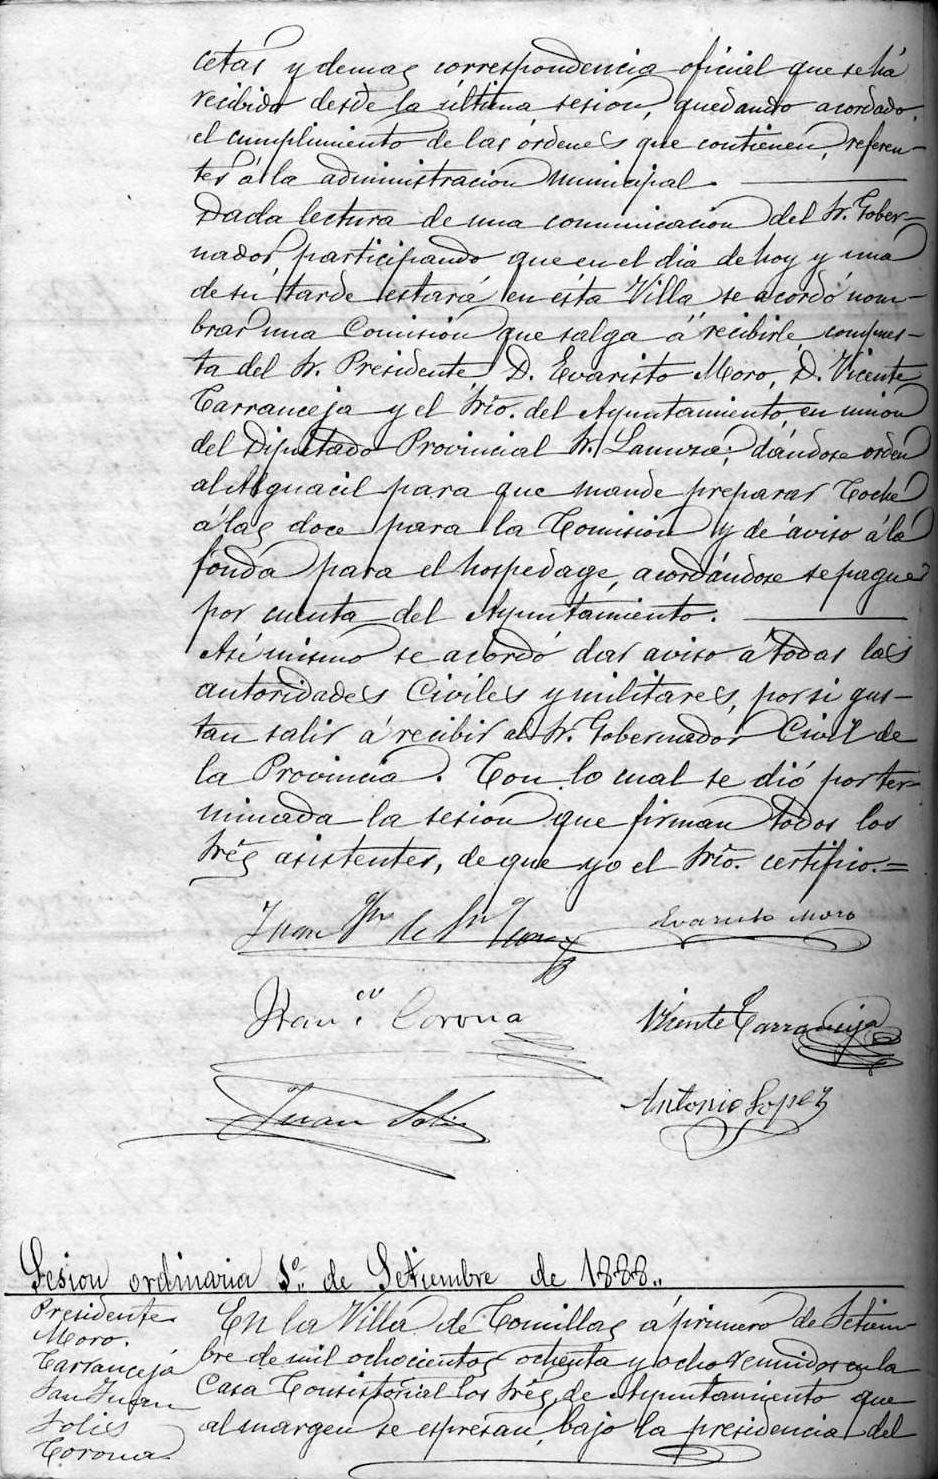 cetas y demas correspondencia oficial que se há
recibido desde la última sesion, quedando acordado
el cumplimiento de las órdenes que contienen, referen-
tes á la administracion municipal.
Dada lectura de una comunicacion del Sr. Gober-
nador, participando que en el dia de hoy y una
de su tarde estará en ésta Villa se acordó nom-
brar una Comision que salga á recibirle, compues-
ta del Sr. Presidente, D. Evaristo Moro, D. Vicente
Tarranceja y el Srio. del Ayuntamiento, en union
del Diputado Provincial Sr. Lamuza; dándose orden
al Alguacil para que mande preparar Coche
á las doce para la Comision y dé aviso á la
fonda para el hospedage, acordándose se pague
por cuenta del Ayuntamiento.
Asi mismo se acordó dar aviso á todas las
autoridades Civiles y militares, por si gus-
tan salir á recibir al Sr. Gobernador Civil de
la Provincia. Con lo cual se dió por ter-
minada la sesion que firman todos los
Sres asistentes, de que yo el Srio. certifico.=
Juan de Evaristo Moro
Franco. Corona Vicente Tarranceja
Juan Solis Antonio Lopez
Sesion ordinaria 1º. de Setiembre de 1888..
Presidente
Moro.
Tarranceja
San Juan
Solis
Corona
En la Villa de Comillas á primero de Setiem-
bre de mil ochocientos ochenta y ocho reunidos en la
Casa Consistorial los Sres de Ayuntamiento que
al margen se espresan, bajo la presidencia del